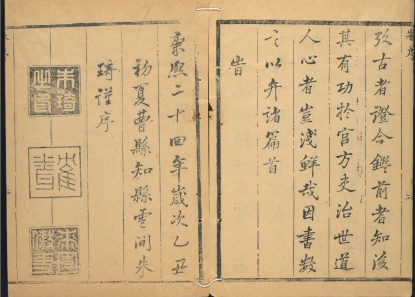 攷古者證今鑑前者知後
其有功於官方吏治世道
人心者豈淺鮮哉因書數
言以弁諸篇首
旹
康熙二十四年歲次乙丑
初夏曹縣知縣雲間朱
琦謹序
朱琦